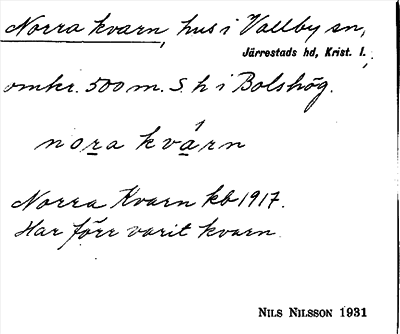 Norra kvarn, hus i Vallby sn,
Järrestads hd, Krist. l.,
omkr. 500 m. S. h i Bolshög.
nora kvárn
Norra Kvarn kb 1917.
Har förr varit kvarn.
NILS NILSSON 1931